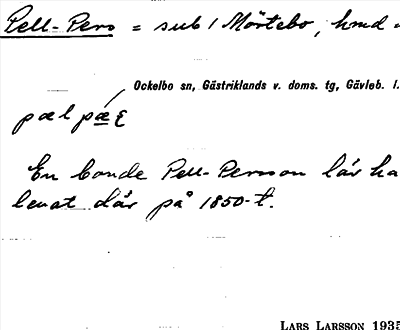 Pell-Pers = sub 1 Mörtebo, hmd
Ockelbo sn, Gästriklands v. doms. tg, Gävleb. l.
pæl pæ
En bonde Pell-Persson lär ha
levat där på 1850-t.
LARS LARSSON 1935